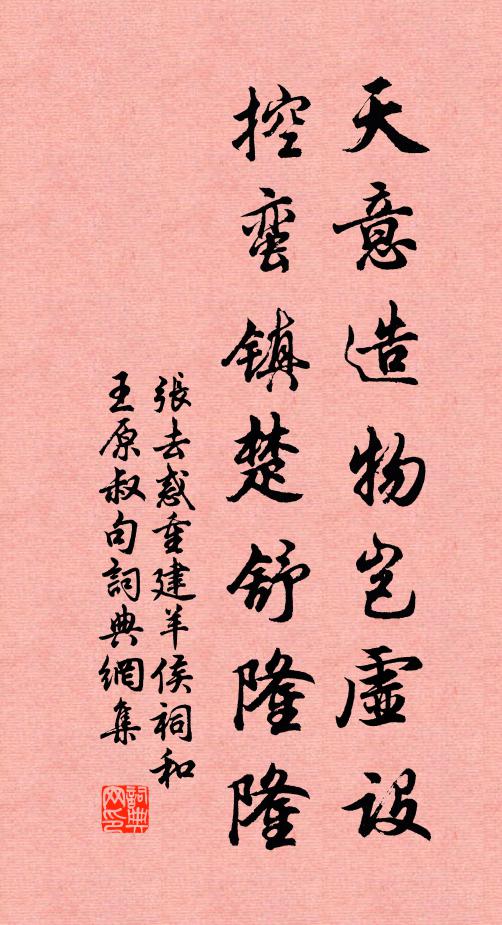 天意造物岂虚设
控蛮镇楚舒隆隆
張去惑重建羊侯祠和
王原叔句詞典網集
詞典网印